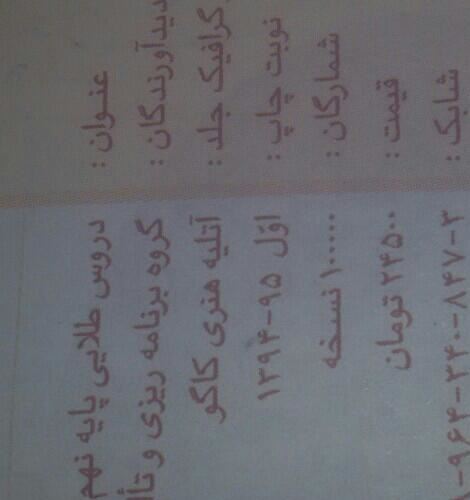 عنوان : دروس طلایی پایه نهم
پدیدآورندگان : گروه برنامه ریزی و تأ
گرافیک جلد : آتلیه هنری کاگو
نوبت چاپ : اوّل ۹۵-۱۳۹۴
شمارگان : ۱۰۰۰۰۰ نسخه
قیمت : ۲۴۵۰۰ تومان
شابک : ۳-۸۴۷-۳۴۰-۹۶۴-